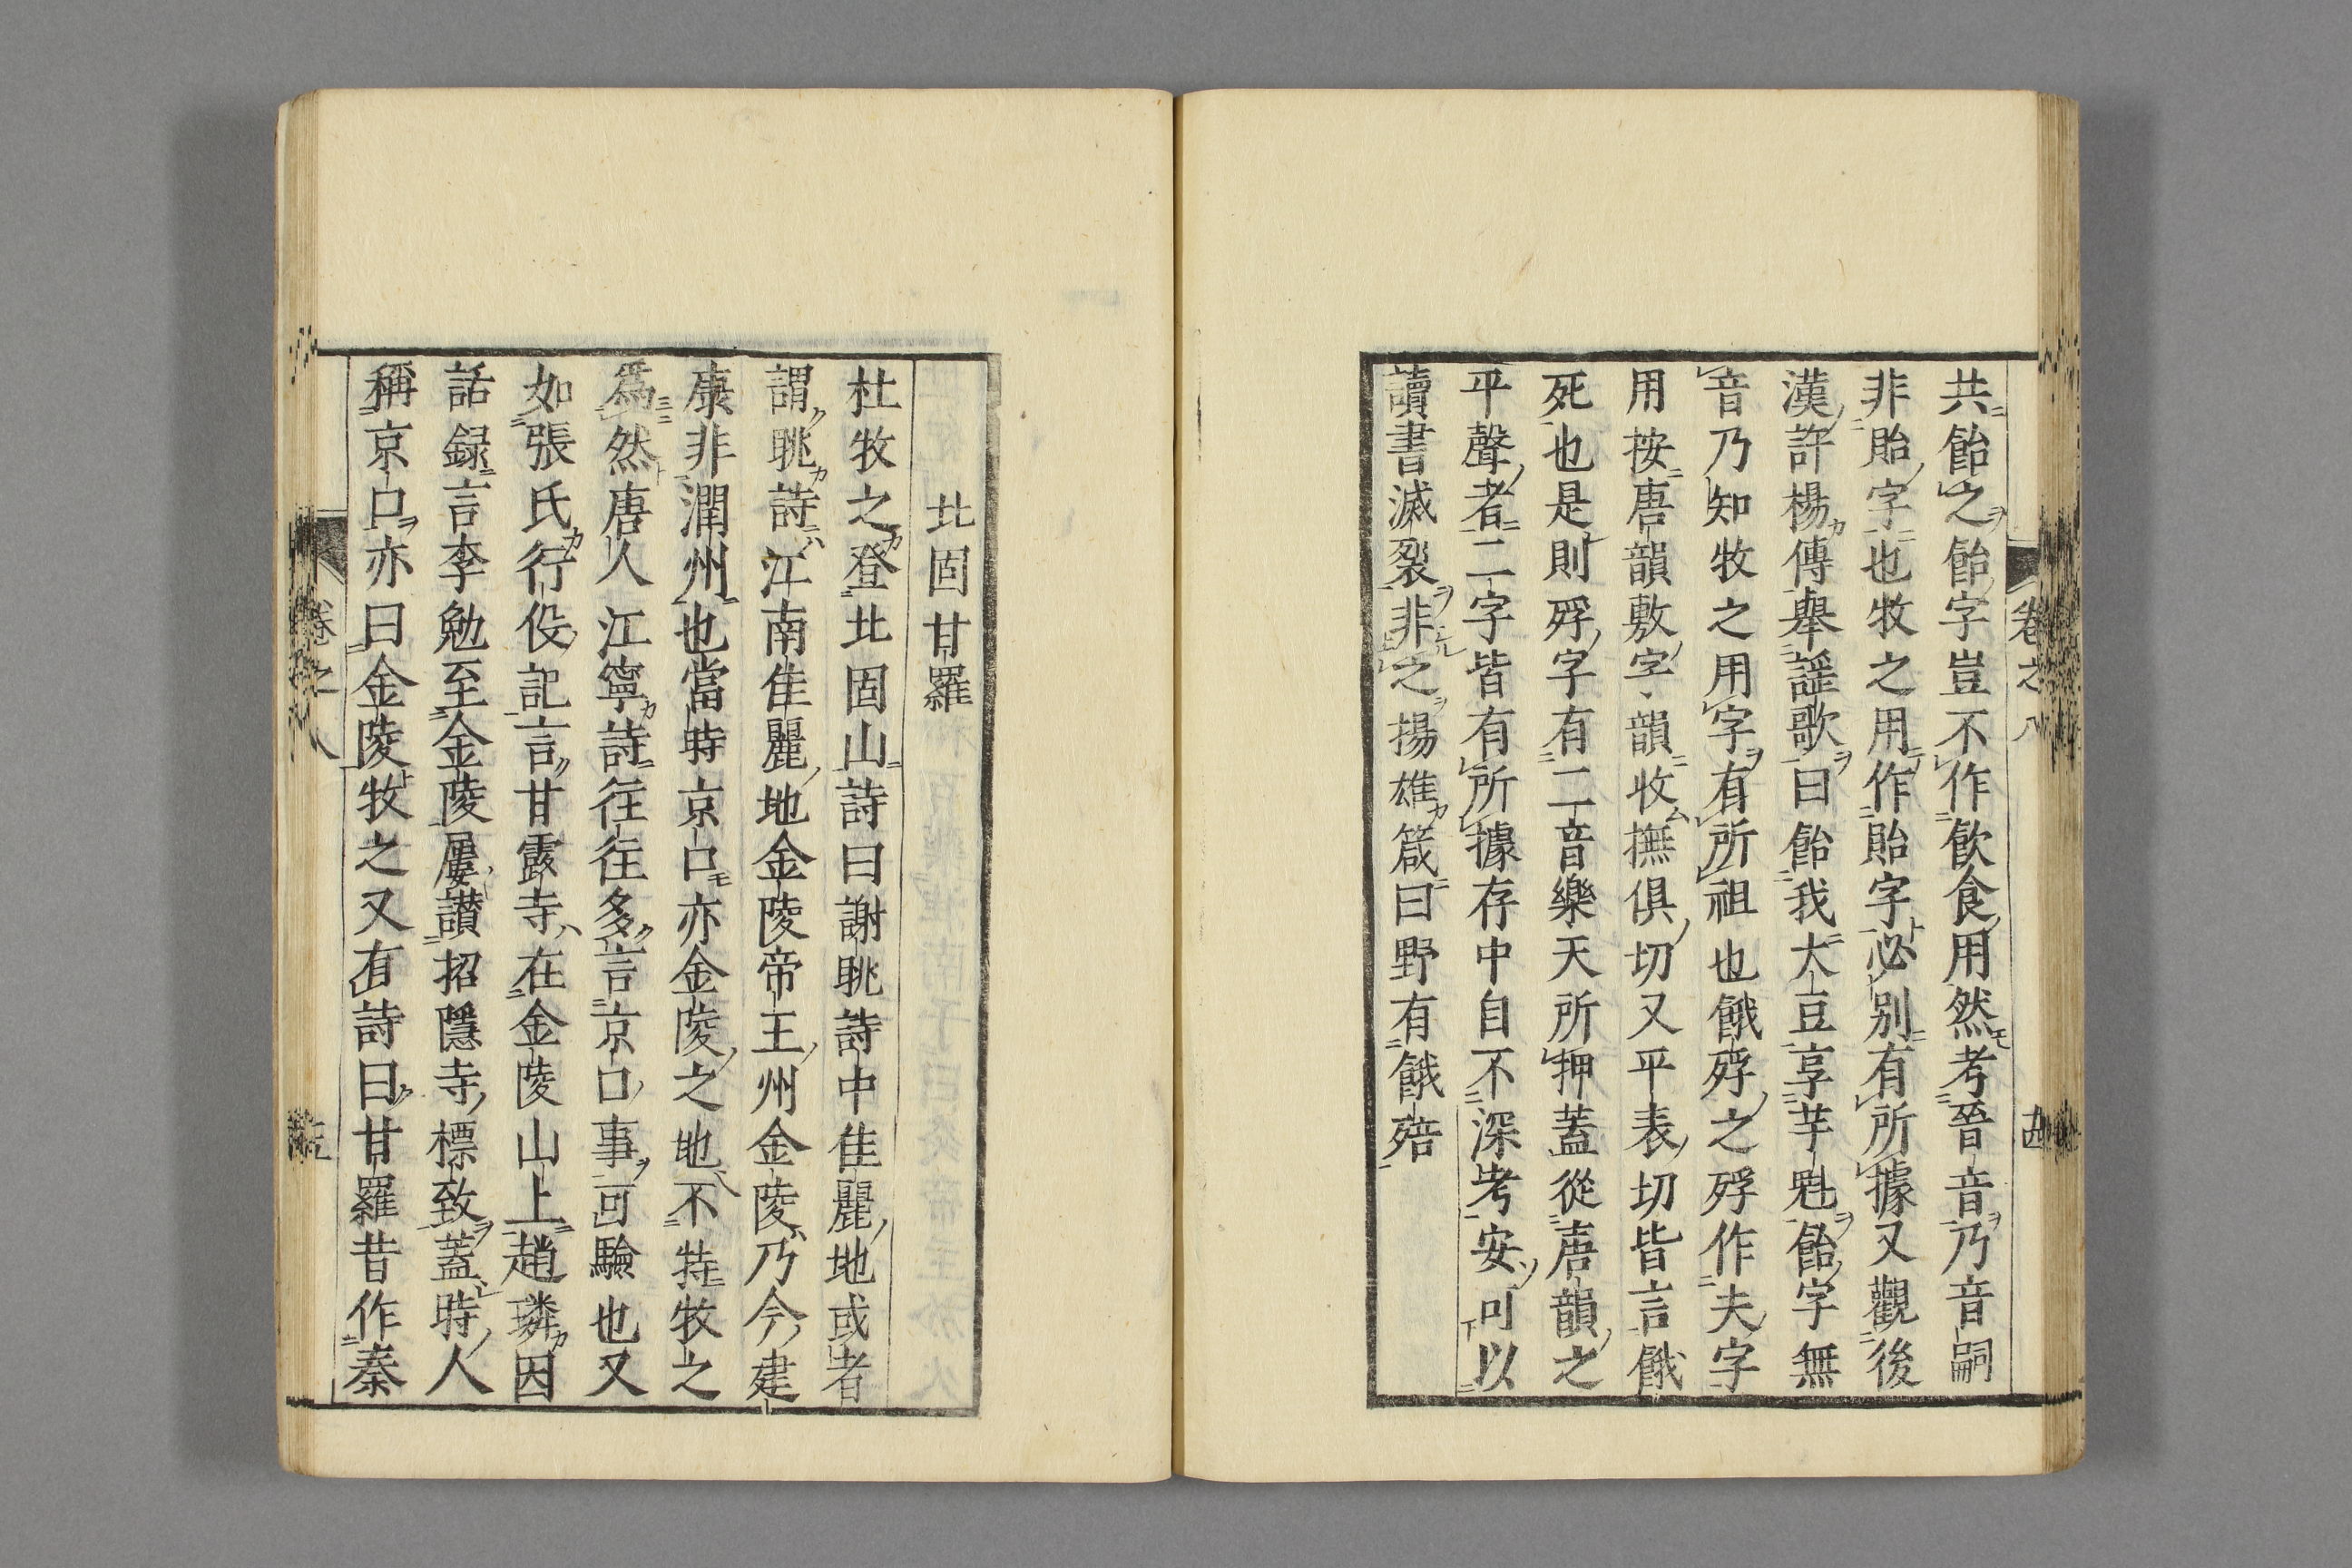 共飴之飴字豈不作飲食用然考晉音乃音嗣
非貽字也牧之用作貽字必別有所據又觀後
漢許楊傳舉謡歌曰飴我大豆享芋魁飴字無
音乃知牧之用字有所祖也餓殍之殍作夫字
用按唐韻敷字韻收撫俱切又平表切皆言餓
死也是則殍字有二音樂天所押蓋從唐韻之
平聲者二字皆有所據存中自不深考安可以
讀書滅裂非之揚雄箴曰野有餓殕
卷之八
北固甘羅
杜牧之登北固山詩曰謝眺詩中佳麗地或者
謂眺詩江南佳麗地金陵帝王州金陵乃今建
康非潤州也當時京口亦金陵之地不特牧之
為然唐人江寧詩往往多言京口事可驗也又
如張氏行役記言甘露寺在金陵山上趙璘因
話録言李勉至金陵屢讃招隱寺標致蓋時人
稱京口亦曰金陵牧之又有詩曰甘羅昔作秦
卷之八